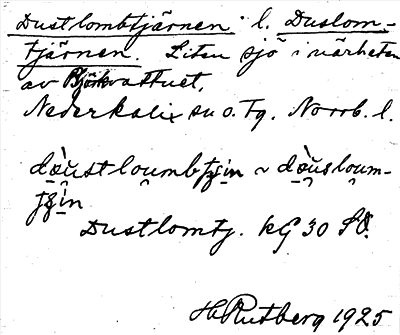 Dustlombtjärnen l. Duslom-
tjärnen. Liten sjö i närheten
av Björkvattnet,
Nederkalix sn o. Tg. Norrb. l.
dòustloumbtjin ~ dòusloum-
tjin
Dustlomtj. kG 30 SO.
H Rutberg 1925